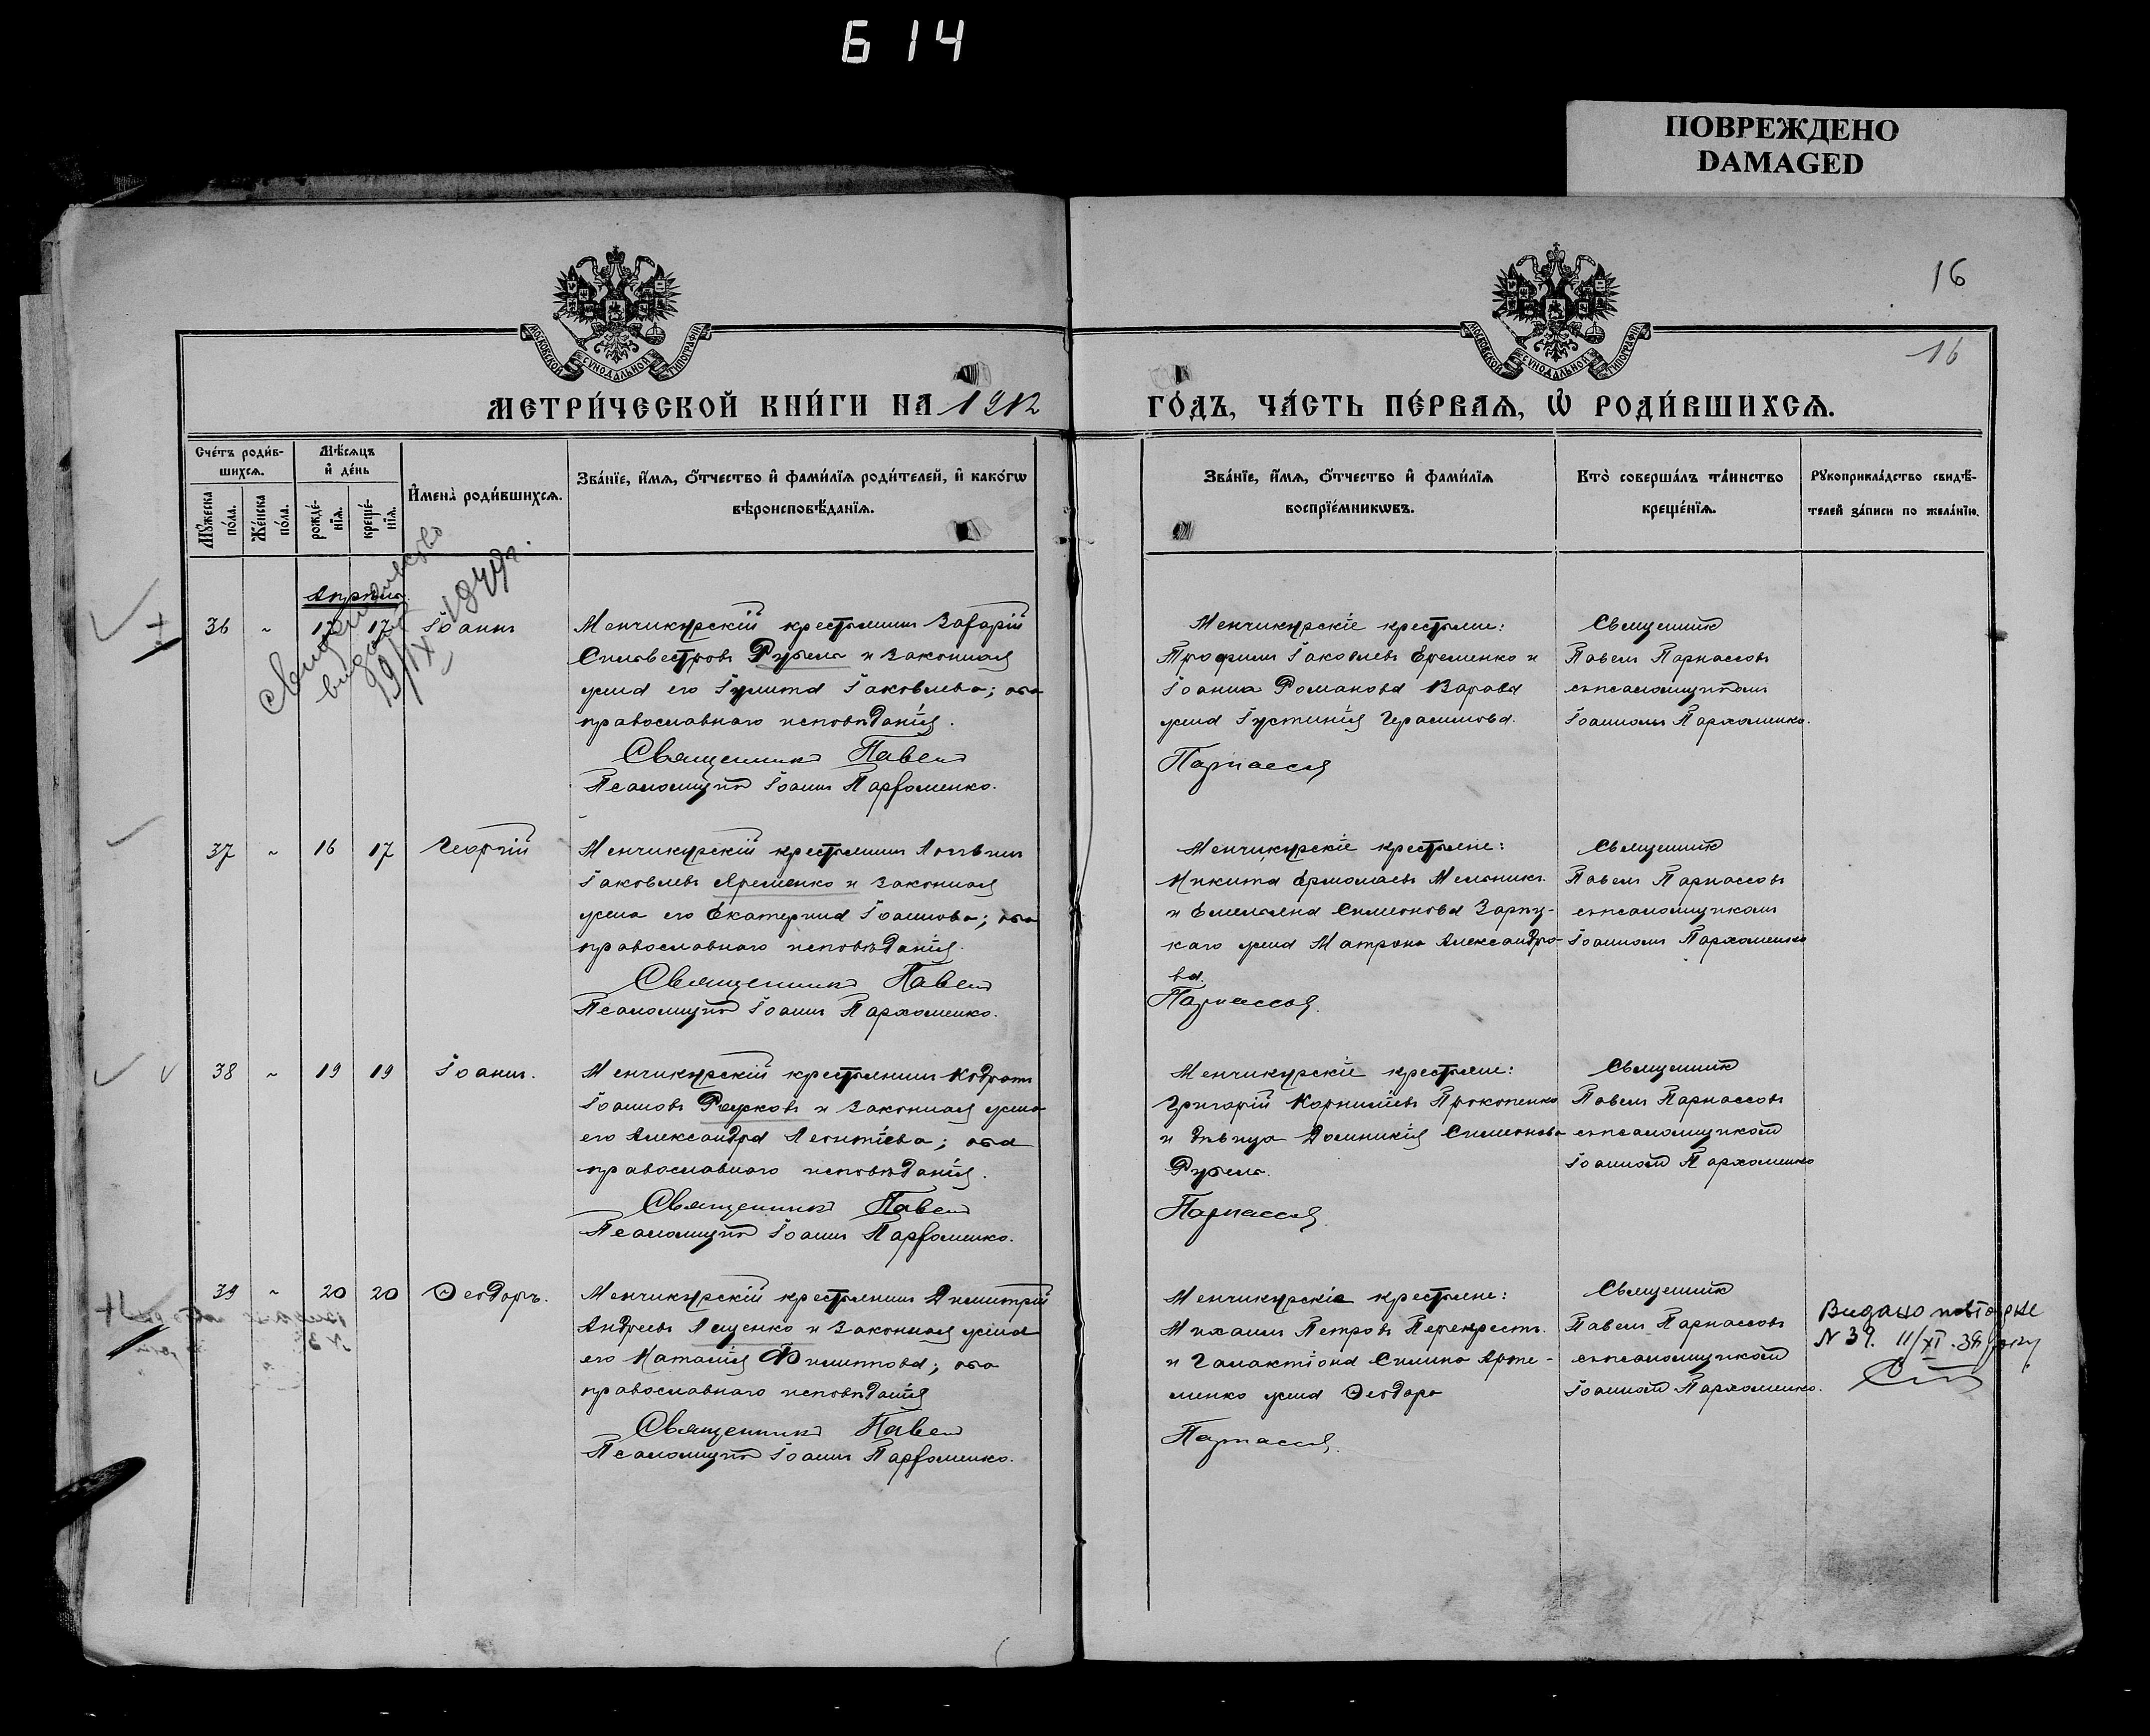 614
ПОВРЕЖДЕНО
DAMAGED
16
16
МОСКОВСКОЙ СѴНОДАЛЬНОЙ ТИПОГРАФІИ
МОСКОВСКОЙ СѴНОДАЛЬНОЙ ТИПОГРАФІИ
МЕТРИ́ЧЕСКОЙ КНИ́ГИ НА 1912
ГО́ДЪ, ЧА́СТЬ ПЕ́РВАѦ, Ѡ҆ РОДИ́ВШИХСѦ.
Сче́тъ роди́в-
шихсѧ.
Мꙋ́жеска по́ла.
Же́нска по́ла.
Мѣ́сѧцъ
и҆ де́нь
рожде́-
нїѧ.
креще́-
нїѧ.
И҆мена̀ роди́вшихсѧ.
Зва́нїе, и҆́мѧ, ѻ҆́тчество и҆ фами́лїѧ роди́телей, и҆ како́гѡ
вѣроисповѣ́данїѧ.
Зва́нїе, и҆́мѧ, ѻ҆́тчество и҆ фами́лїѧ
воспрїе́мникѡвъ.
Кто̀ соверша́лъ та́инство
креще́нїѧ.
Рꙋкоприкла́дство свидѣ́-
телей за́писи по жела́нїю.
Апрѣль
36 " 17 17 Іоаннъ
Менчикурскій крестьянинъ Захарій
Сильвестровъ Рубель и законная
жена его Іулита Іаковлева; оба
православнаго исповѣданія.
Священникъ Павелъ
Псаломщикъ Іоаннъ Пархоменко.
Менчикурскіе крестьяне:
Трофимъ Іаковлевъ Еременко и
Іоанна Романова Варава
жена Іустинія Герасимова.
Парнассовъ
Священникъ
Павелъ Парнассовъ
съ псаломщикомъ
Іоанномъ Пархоменко.
37 " 16 17 Георгій
Менчикурскій крестьянинъ Логвинъ
Іаковлевъ Яременко и законная
жена его Екатерина Іоаннова; оба
православнаго исповѣданія.
Священникъ Павелъ
Псаломщикъ Іоаннъ Пархоменко.
Менчикурскіе крестьяне:
Никита Ермолаевъ Мельникъ
и Емельяна Симеонова
жена Матрона Александро-
ва.
Парнассовъ.
Священникъ
Павелъ Парнассовъ
съ псаломщикомъ
Іоанномъ Пархоменко
38 " 19 19 Іоаннъ.
Менчикурскій крестьянинъ Кодратъ
Іоанновъ и законная жена
его Александра Леонтіева; оба
православнаго исповѣданія.
Священникъ Павелъ
Псаломщикъ Іоаннъ Пархоменко.
Менчикурскіе крестьяне:
Григорій Корниліевъ Прокопенко
и дѣвица Домникія Симеонова
Рубель.
Парнассовъ.
Священникъ
Павелъ Парнассовъ
съ псаломщикомъ
Іоанномъ Пархоменко
39 " 20 20 Ѳеодоръ.
Менчикурскій крестьянинъ Димитрій
Андреевъ Лещенко и законная жена
его Наталія Филиппова; оба
православнаго исповѣданія
Священникъ Павелъ
Псаломщикъ Іоаннъ Пархоменко.
Менчикурскіе крестьяне:
Михаилъ Петровъ Перекрестъ.
и Галактіона Силина Арте-
менко жена Ѳеодора
Парнассовъ.
Священникъ
Павелъ Парнассовъ
съ псаломщикомъ
Іоанномъ Пархоменко.
Видано повторне
N 39. 11/XI. 38 року